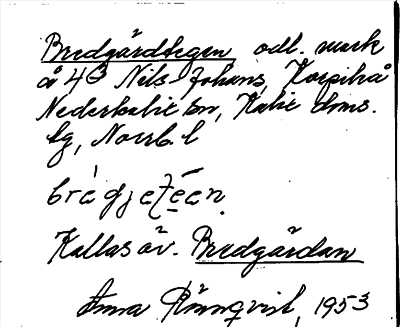 Bredgärdtegen odl. mark
å 4:3 Nils-Johans, Korpikå
Nederkalix sn, Kalix doms.
lg, Norrb. l
Kallas äv. Bredgärdan
Anna Rönnqvist, 1953